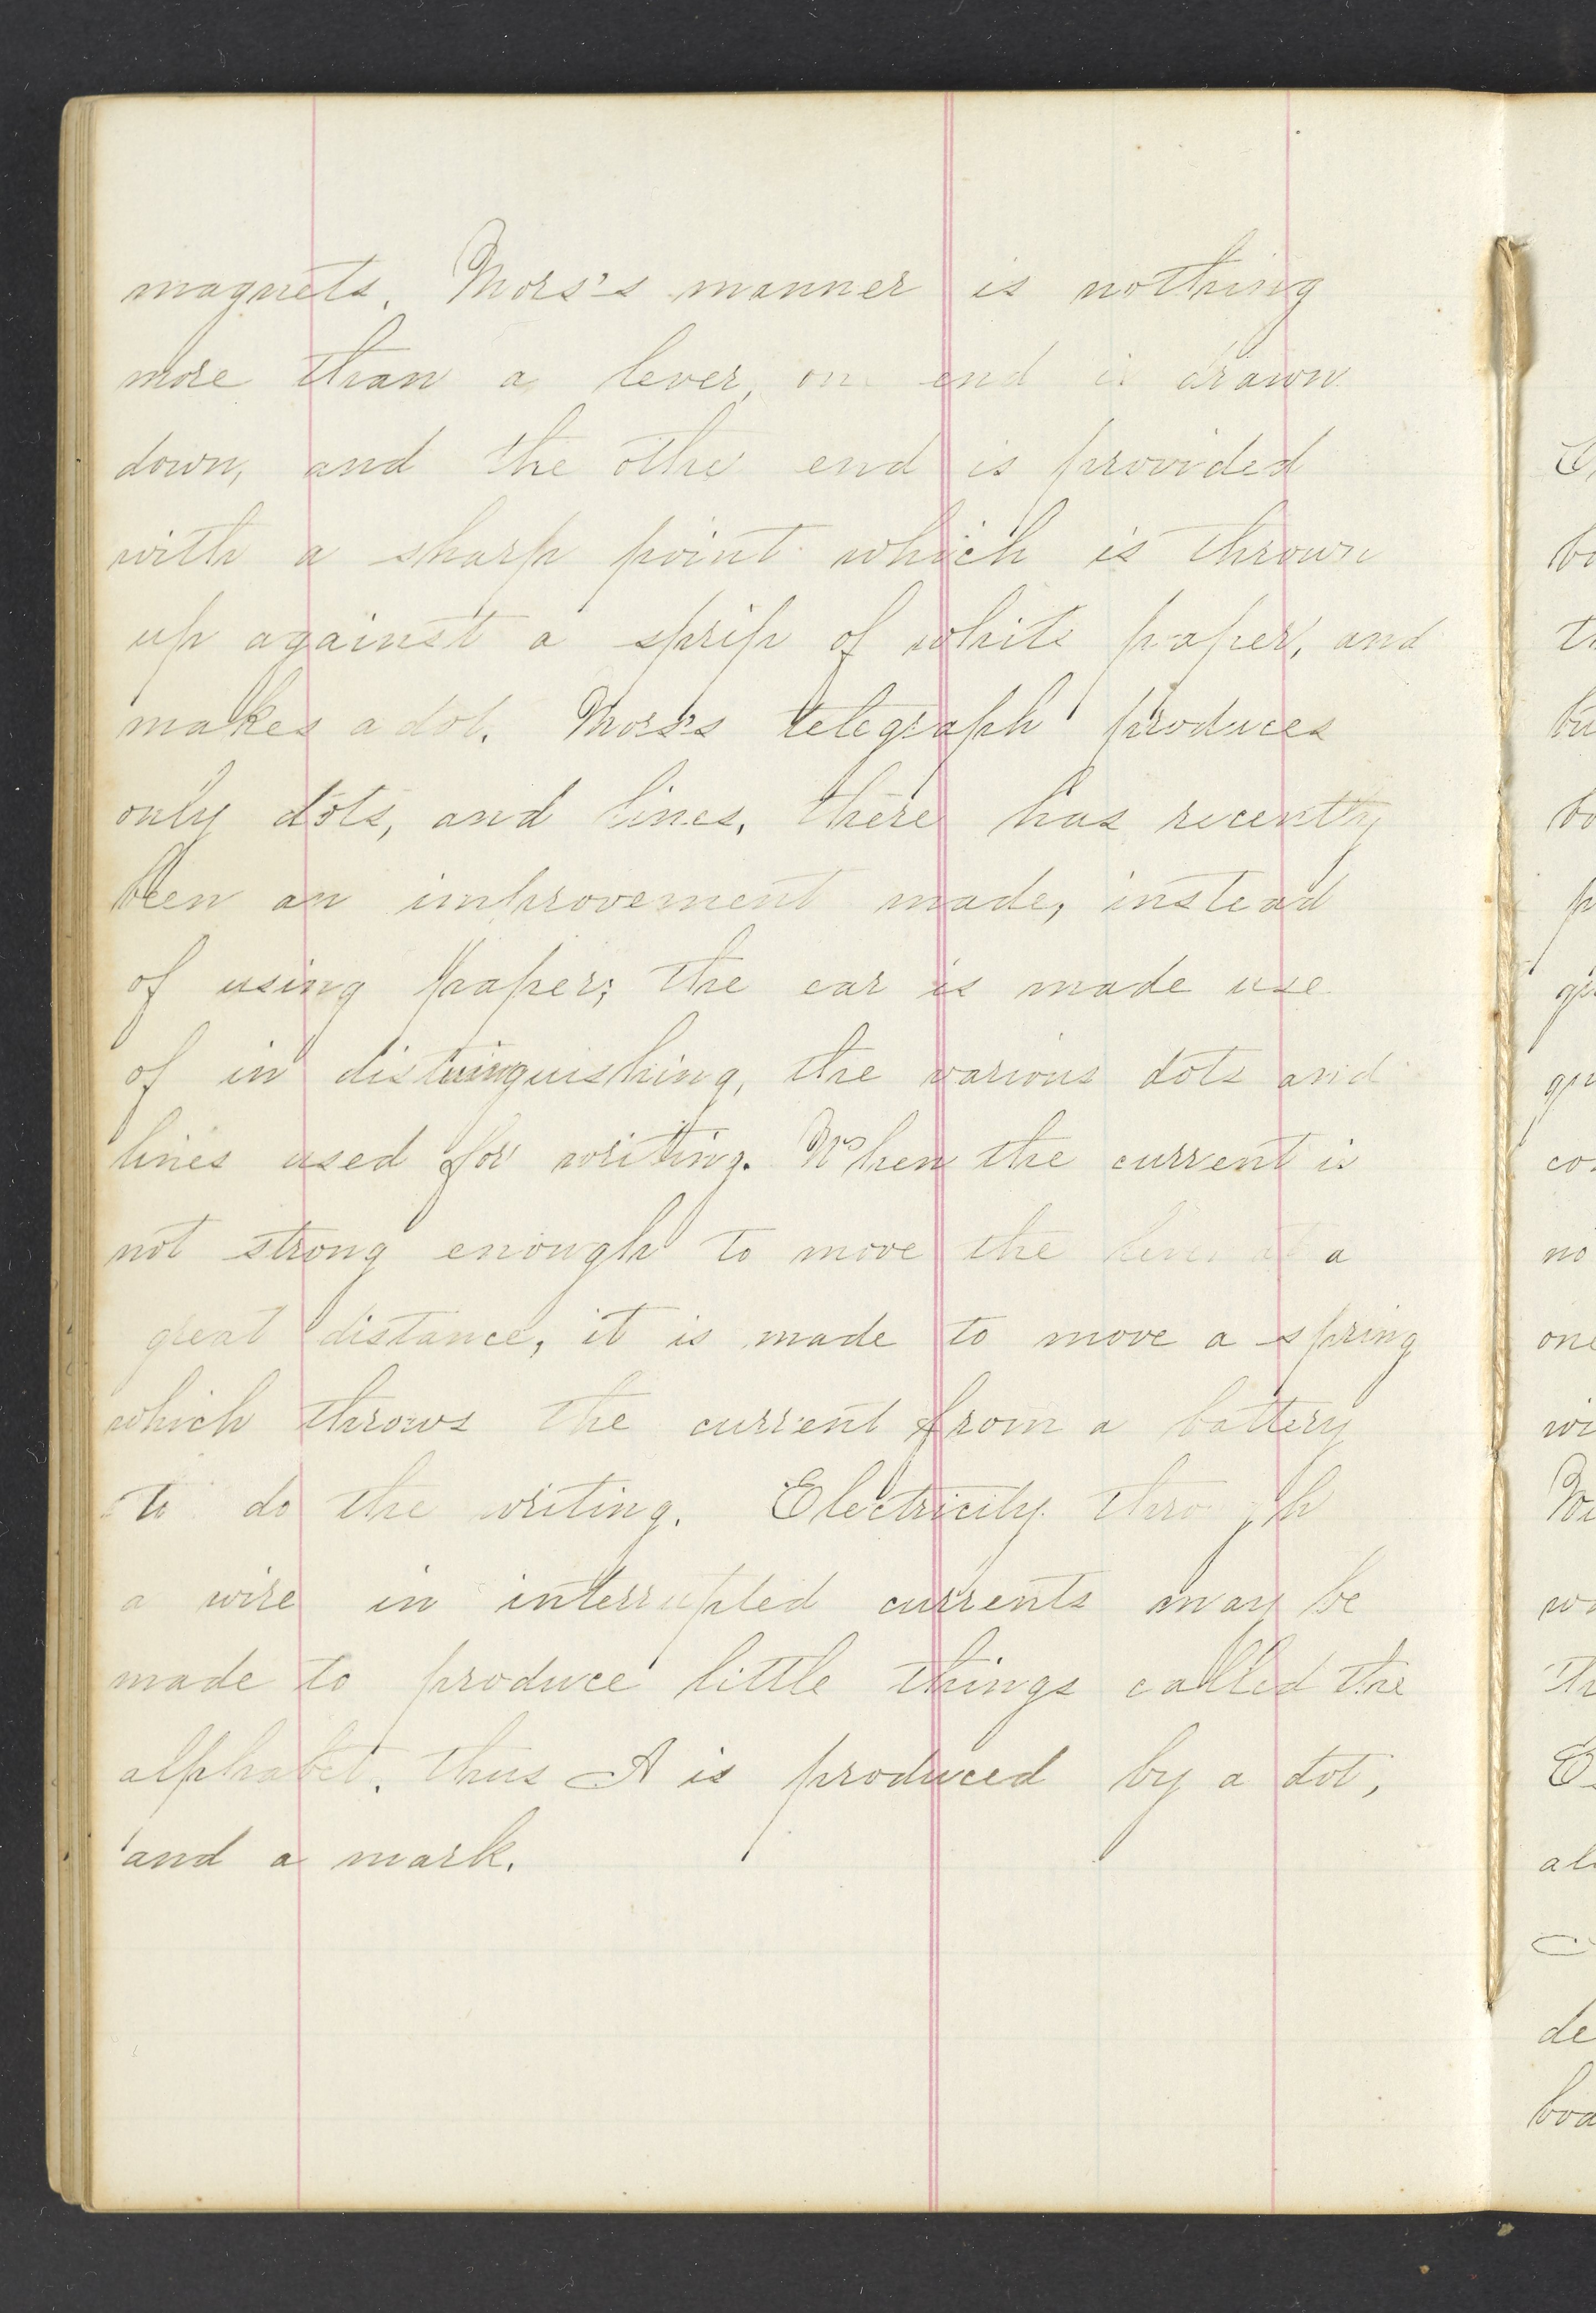 magnets. Mors's manner is nothing
more than a lever, one end is drawn
down, and the othe end is provided
with a sharp point which is thrown
up against a sprip of white paper, and
makes a dot. Mors's telegraph produces
only dots, and lines, there has recently
been an improvement made, instead
of using paper; the ear is made use
of in distuinguishing, the various dots and
lines used for writing. When the current is
not strong enough to move the lever at a
great distance, it is made to move a spring
which throws the current from a battery
to do the writing. Electricity through
a wire in interrupted currents may be
made to produce little things called the
alphabet, thus A is produced by a dot,
and a mark.